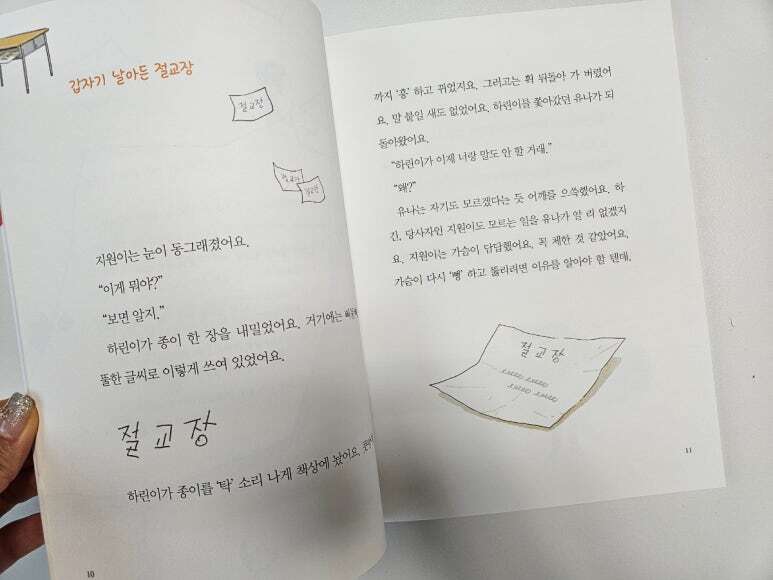 갑자기 날아든 절교장
절교장
절교장
절교장
지원이는 눈이 동그래졌어요.
“이게 뭐야?”
“보면 알지.”
하린이가 종이 한 장을 내밀었어요. 거기에는
뚤한 글씨로 이렇게 쓰여 있었어요.
절교장
하린이가 종이를 ‘탁’ 소리 나게 책상에 놨어요.
10
까지 ‘흥’ 하고 뀌었지요. 그러고는 휙 뒤돌아 가 버렸어
요. 말 붙일 새도 없었어요. 하린이를 쫓아갔던 유나가 되
돌아왔어요.
“하린이가 이제 너랑 말도 안 할 거래.”
“왜?”
유나는 자기도 모르겠다는 듯 어깨를 으쓱했어요. 하
긴, 당사자인 지원이도 모르는 일을 유나가 알 리 없겠지
요. 지원이는 가슴이 답답했어요. 꼭 체한 것 같았어요.
가슴이 다시 ‘뻥’ 하고 뚫리려면 이유를 알아야 할 텐데.
절교장
11